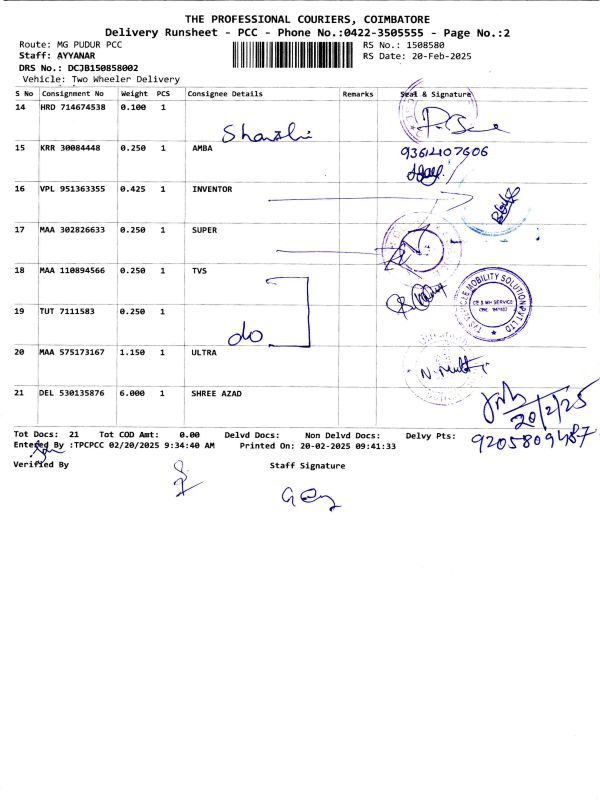 THE PROFESSIONAL COURIERS, COIMBATORE
Delivery Runsheet - PCC - Phone No.:0422-3505555 - Page No.:2
Route: MG PUDUR PCC RS No.: 1508580
Staff: AYYANAR RS Date: 20-Feb-2025
DRS No.: DCJB150858002
Vehicle: Two Wheeler Delivery
S No Consignment No Weight PCS Consignee Details Remarks Seal & Signature
14 HRD 714674538 0.100 1
15 KRR 30084448 0.250 1 AMBA 93612107606
16 VPL 951363355 0.425 1 INVENTOR
17 MAA 302826633 0.250 1 SUPER
18 MAA 110894566 0.250 1 TVS
TVS VEHICLE MOBILITY SOLUTION PVT LTD
19 TUT 7111583 0.250 1
do
20 MAA 575173167 1.150 1 ULTRA
21 DEL 530135876 6.000 1 SHREE AZAD
20/2/25
9205809487
Tot Docs: 21 Tot COD Amt: 0.00 Delvd Docs: Non Delvd Docs: Delvy Pts:
Entered By :TPCPCC 02/20/2025 9:34:40 AM Printed On: 20-02-2025 09:41:33
Verified By Staff Signature